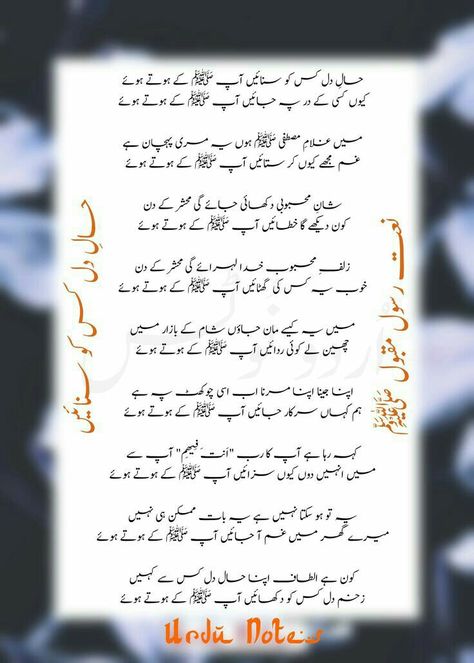 حالِ دل کس کو سنائیں آپ ﷺ کے ہوتے ہوئے
کیوں کسی کے در پہ جائیں آپ ﷺ کے ہوتے ہوئے
میں غلامِ مصطفی ﷺ ہوں یہ مری پہچان ہے
غم مجھے کیوں کر ستائیں آپ ﷺ کے ہوتے ہوئے
شانِ محبوبی دکھائی جائے گی محشر کے دن
کون دیکھے گا خطائیں آپ ﷺ کے ہوتے ہوئے
زلفِ محبوب خدا لہرائے گی محشر کے دن
خوب یہ کس کی گھٹائیں آپ ﷺ کے ہوتے ہوئے
میں یہ کیسے مان جاؤں شام کے بازار میں
چھین لے کوئی ردائیں آپ ﷺ کے ہوتے ہوئے
اپنا جینا اپنا مرنا اب اسی چوکھٹ پہ ہے
ہم کہاں سرکار جائیں آپ ﷺ کے ہوتے ہوئے
کہہ رہا ہے آپ کا رب "اَنتَ فیھِم" آپ سے
میں انہیں دوں کیوں سزائیں آپ ﷺ کے ہوتے ہوئے
یہ تو ہو سکتا نہیں ہے یہ بات ممکن ہی نہیں
میرے گھر میں غم آ جائیں آپ ﷺ کے ہوتے ہوئے
کون ہے الطاف اپنا حال دل کس سے کہیں
زخمِ دل کس کو دکھائیں آپ ﷺ کے ہوتے ہوئے
نعت رسول مقبول ﷺ
حالِ دل کس کو سنائیں
اردو نوٹس
Urdu Notes